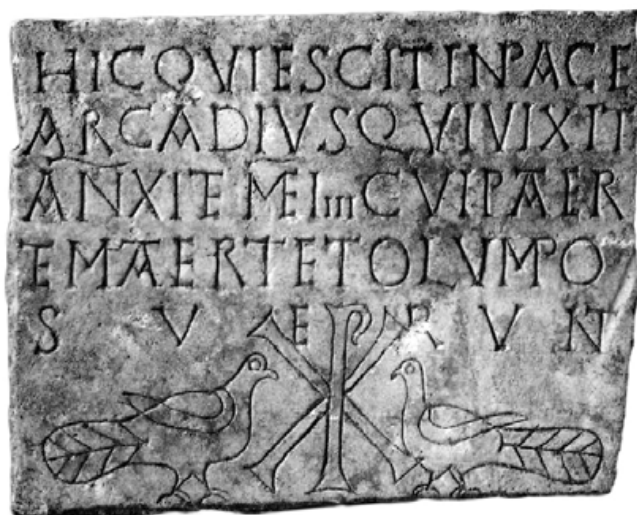 HICQVIESCITINPACE
ARCADIVSQVIVIXIT
ANXITEMEIIIICVIPAER
EMAERTETOLVMPO
S V E R V NT